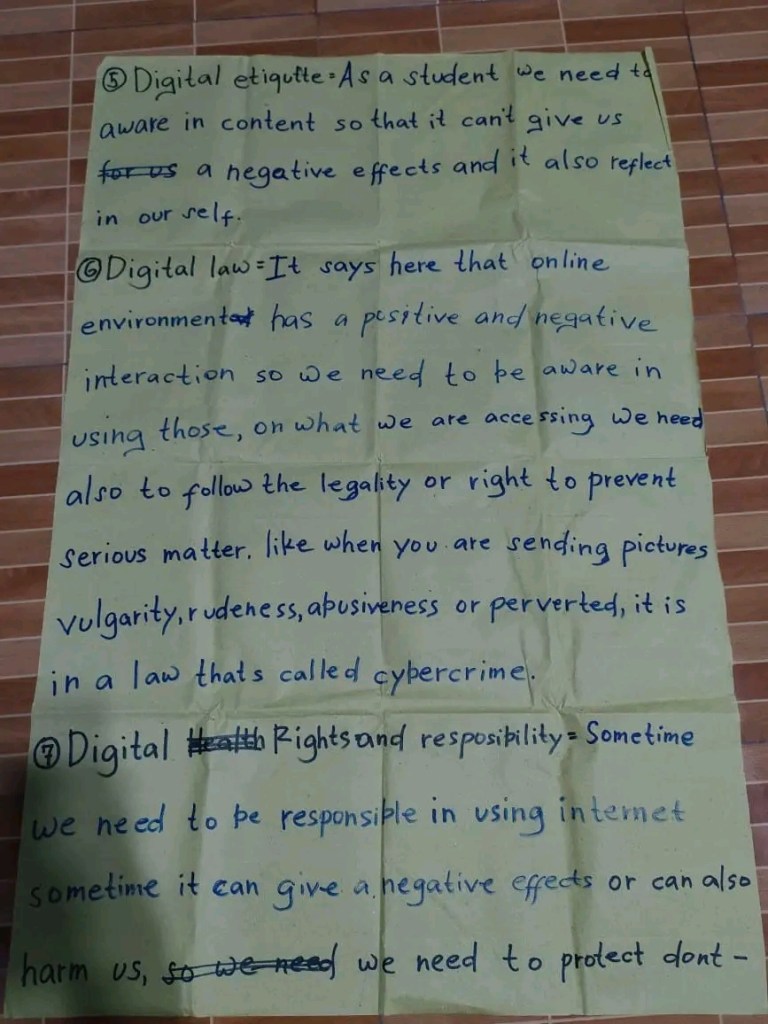 ⑤ Digital etiqutte = As a student we need to
aware in content so that it can't give us
for us a negative effects and it also reflect
in our self.
⑥ Digital law = It says here that online
environment has a positive and negative
interaction so we need to be aware in
using those, on what we are accessing we need
also to follow the legality or right to prevent
serious matter. like when you are sending pictures
vulgarity, rudeness, abusiveness or perverted, it is
in a law thats called cybercrime.
⑦ Digital Health Rights and resposibility = Sometime
we need to be responsible in using internet
sometime it can give a negative effects or can also
harm us, so we need we need to protect dont -